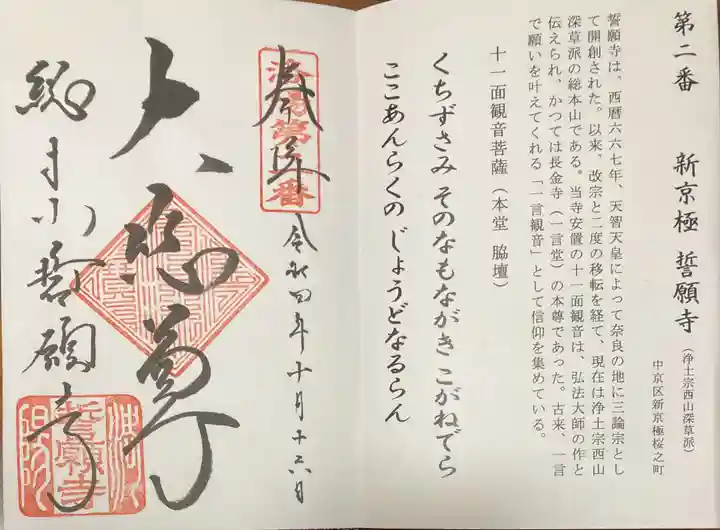 第二番 新京極 誓願寺 (浄土宗西山深草派)
中京区新京極桜之町
誓願寺は、西暦六六七年、天智天皇によって奈良の地に三論宗とし
て開創された。以来、改宗と二度の移転を経て、現在は浄土宗西山
深草派の総本山である。当寺安置の十一面観音は、弘法大師の作と
伝えられ、かつては長金寺(一言堂)の本尊であった。古来、一言
で願いを叶えてくれる「一言観音」として信仰を集めている。
十一面観音菩薩(本堂 脇壇)
くちずさみ そのなもながき こがねでら
ここあんらくの じょうどなるらん
奉拝
令和四年十月十六日
大悲尊
総本山誓願寺
誓願寺